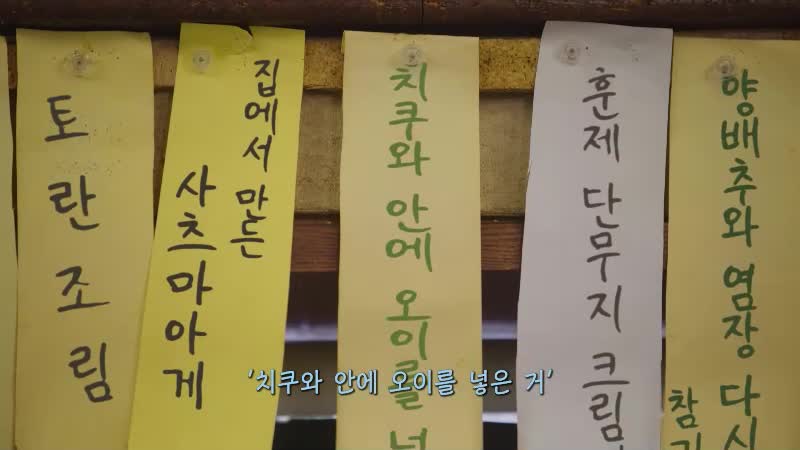 토란 조림
집에서 만든
사츠마아게
치쿠와 안에 오이를
훈제 단무지 크림
양배추와 염장 다시
'치쿠와 안에 오이를 넣은 거'